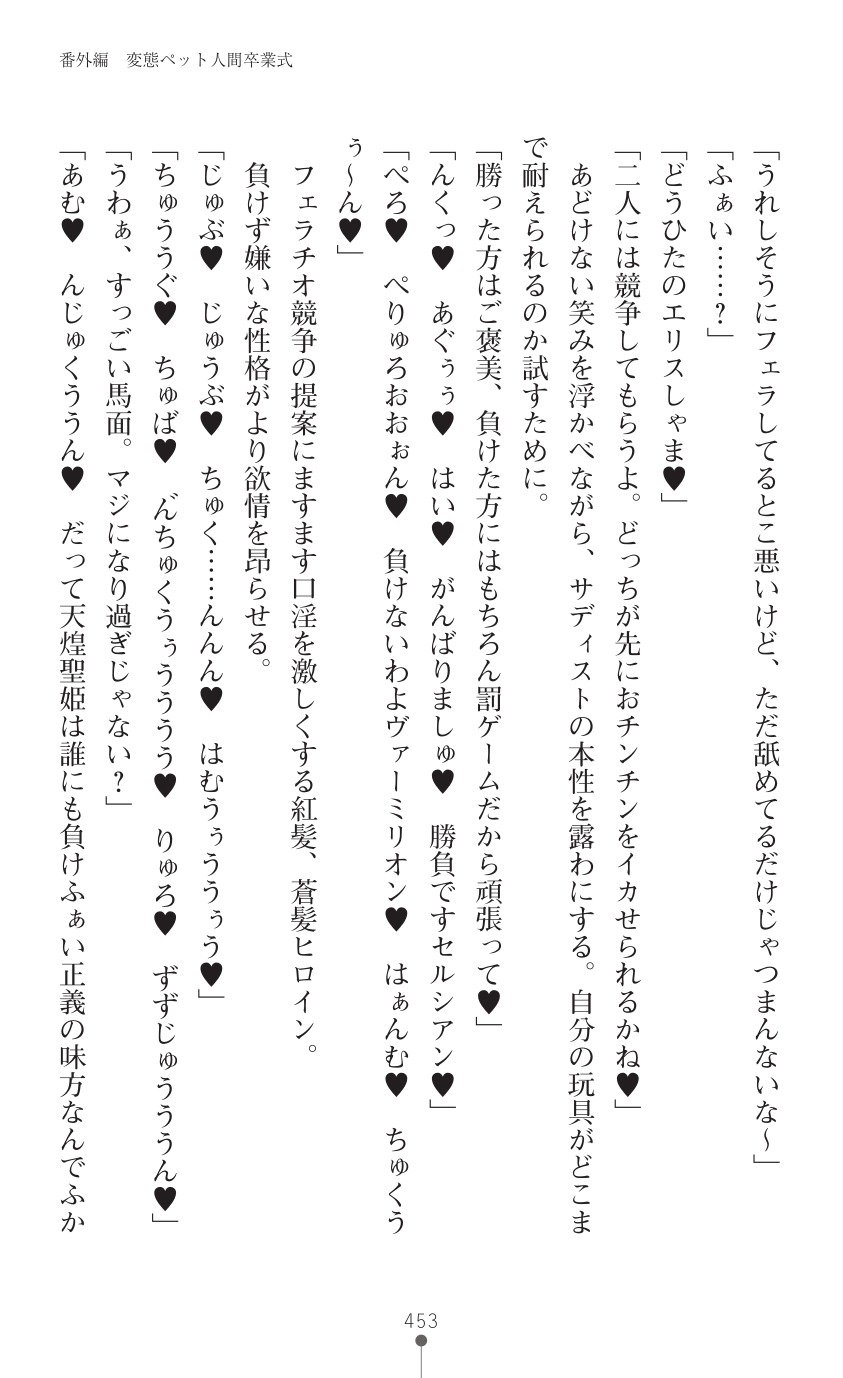 番外編　変態ペット人間卒業式
「うれしそうにフェラしてるとこ悪いけど、ただ舐めてるだけじゃつまんないな～」
「ふぁい……？」
「どうひたのエリスしゃま♥」
「二人には競争してもらうよ。どっちが先におチンチンをイカせられるかね♥」
　あどけない笑みを浮かべながら、サディストの本性を露わにする。自分の玩具がどこま
で耐えられるのか試すために。
「勝った方はご褒美、負けた方にはもちろん罰ゲームだから頑張って♥」
「んくっ♥　あぐぅぅ♥　はい♥　がんばりましゅ♥　勝負ですセルシアン♥」
「ぺろ♥　ぺりゅろおおぉん♥　負けないわよヴァーミリオン♥　はぁんむ♥　ちゅくう
ぅ～ん♥」
　フェラチオ競争の提案にますます口淫を激しくする紅髪、蒼髪ヒロイン。
　負けず嫌いな性格がより欲情を昂らせる。
「じゅぶ♥　じゅうぶ♥　ちゅく……んんん♥　はむうぅううぅう♥」
「ちゅううぐ♥　ちゅば♥　ん゛ちゅくうぅうううう♥　りゅろ♥　ずずじゅうううん♥」
「うわぁ、すっごい馬面。マジになり過ぎじゃない？」
「あむ♥　んじゅくううん♥　だって天煌聖姫は誰にも負けふぁい正義の味方なんでふか
453